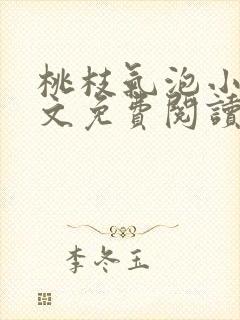 桃枝氣泡小
文免費閱讀
李冬玉